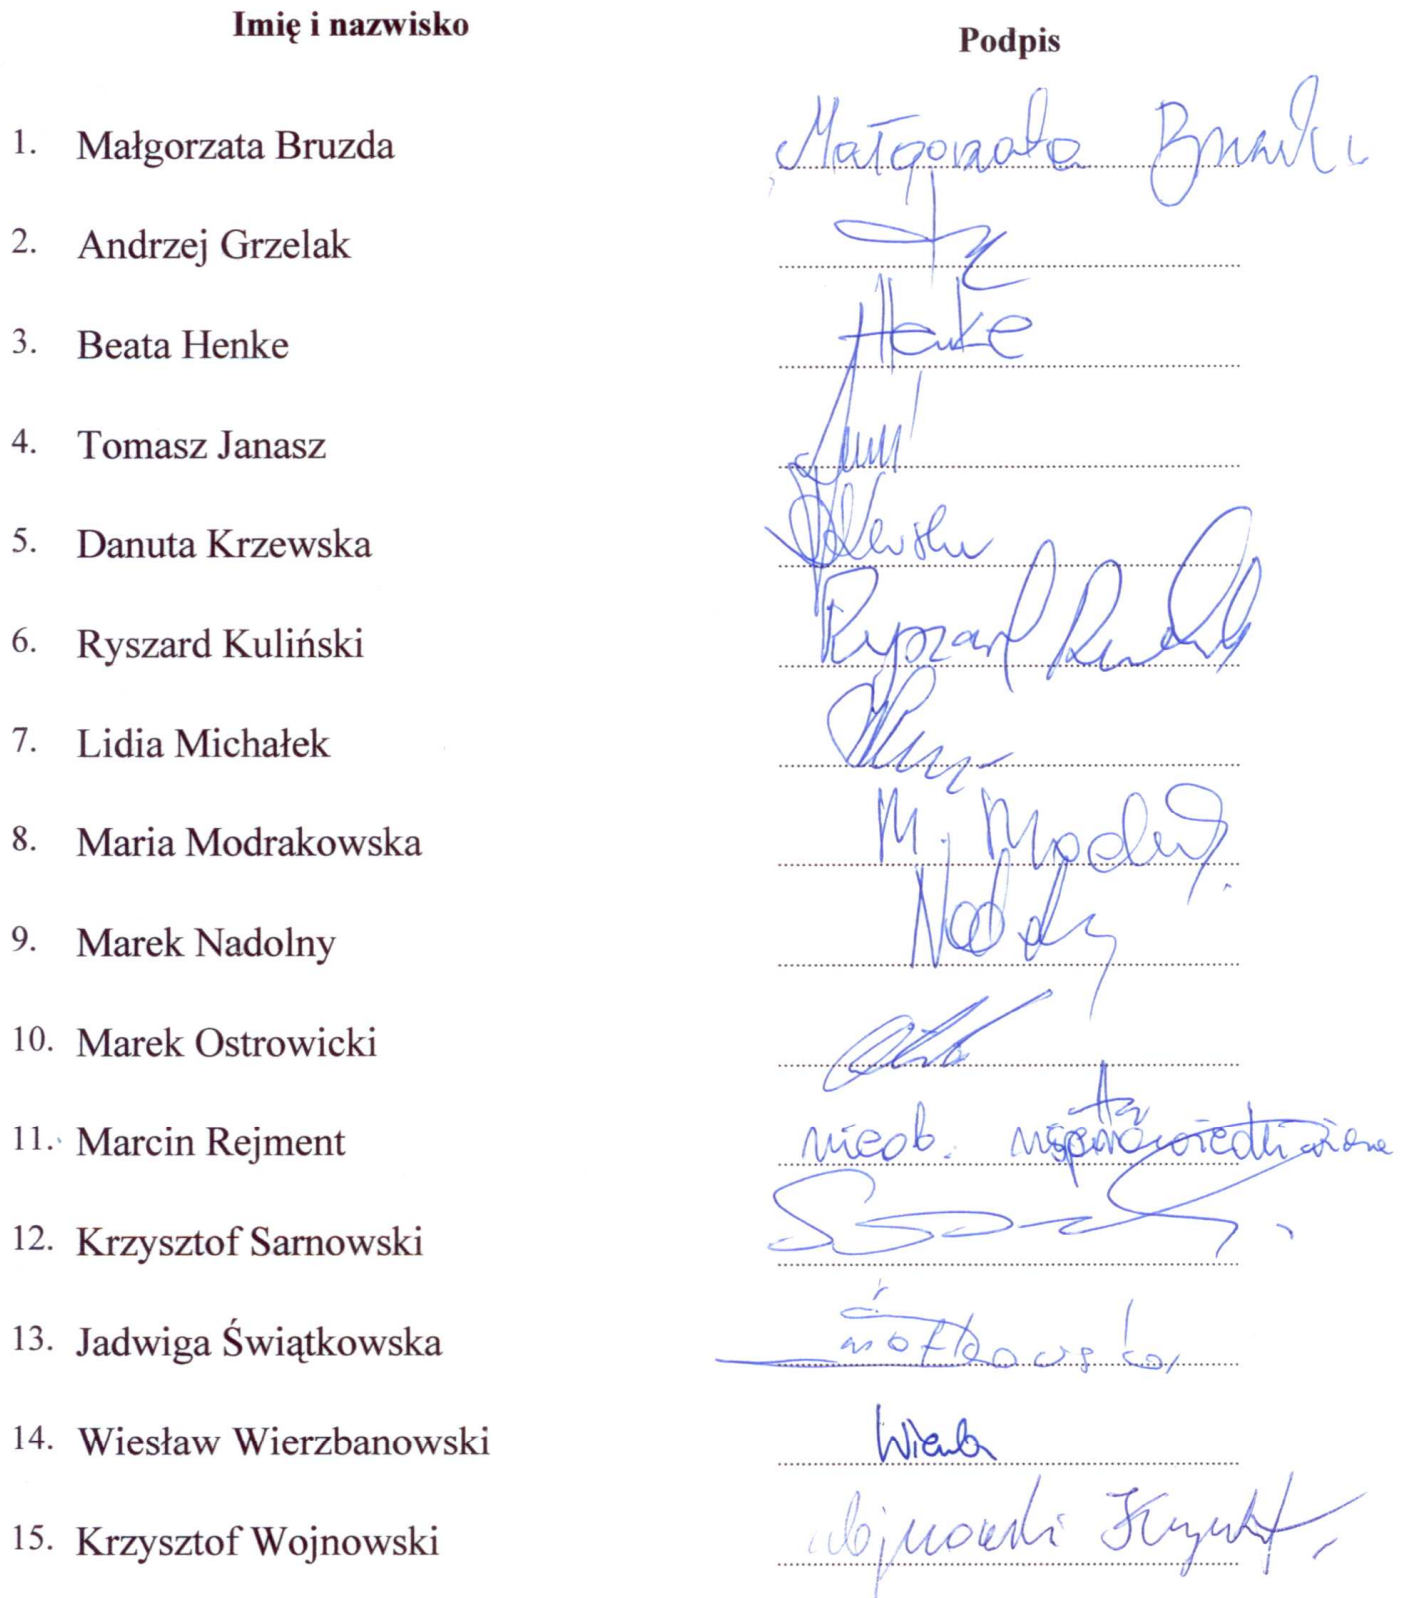 Imię i nazwisko
Podpis
1. Małgorzata Bruzda Małgorzata
2. Andrzej Grzelak
3. Beata Henke Henke
4. Tomasz Janasz
5. Danuta Krzewska
6. Ryszard Kuliński Ryszard
7. Lidia Michałek
8. Maria Modrakowska M.
9. Marek Nadolny
10. Marek Ostrowicki
11. Marcin Rejment nieob. usprawiedliwiona
12. Krzysztof Sarnowski
13. Jadwiga Świątkowska
14. Wiesław Wierzbanowski
15. Krzysztof Wojnowski